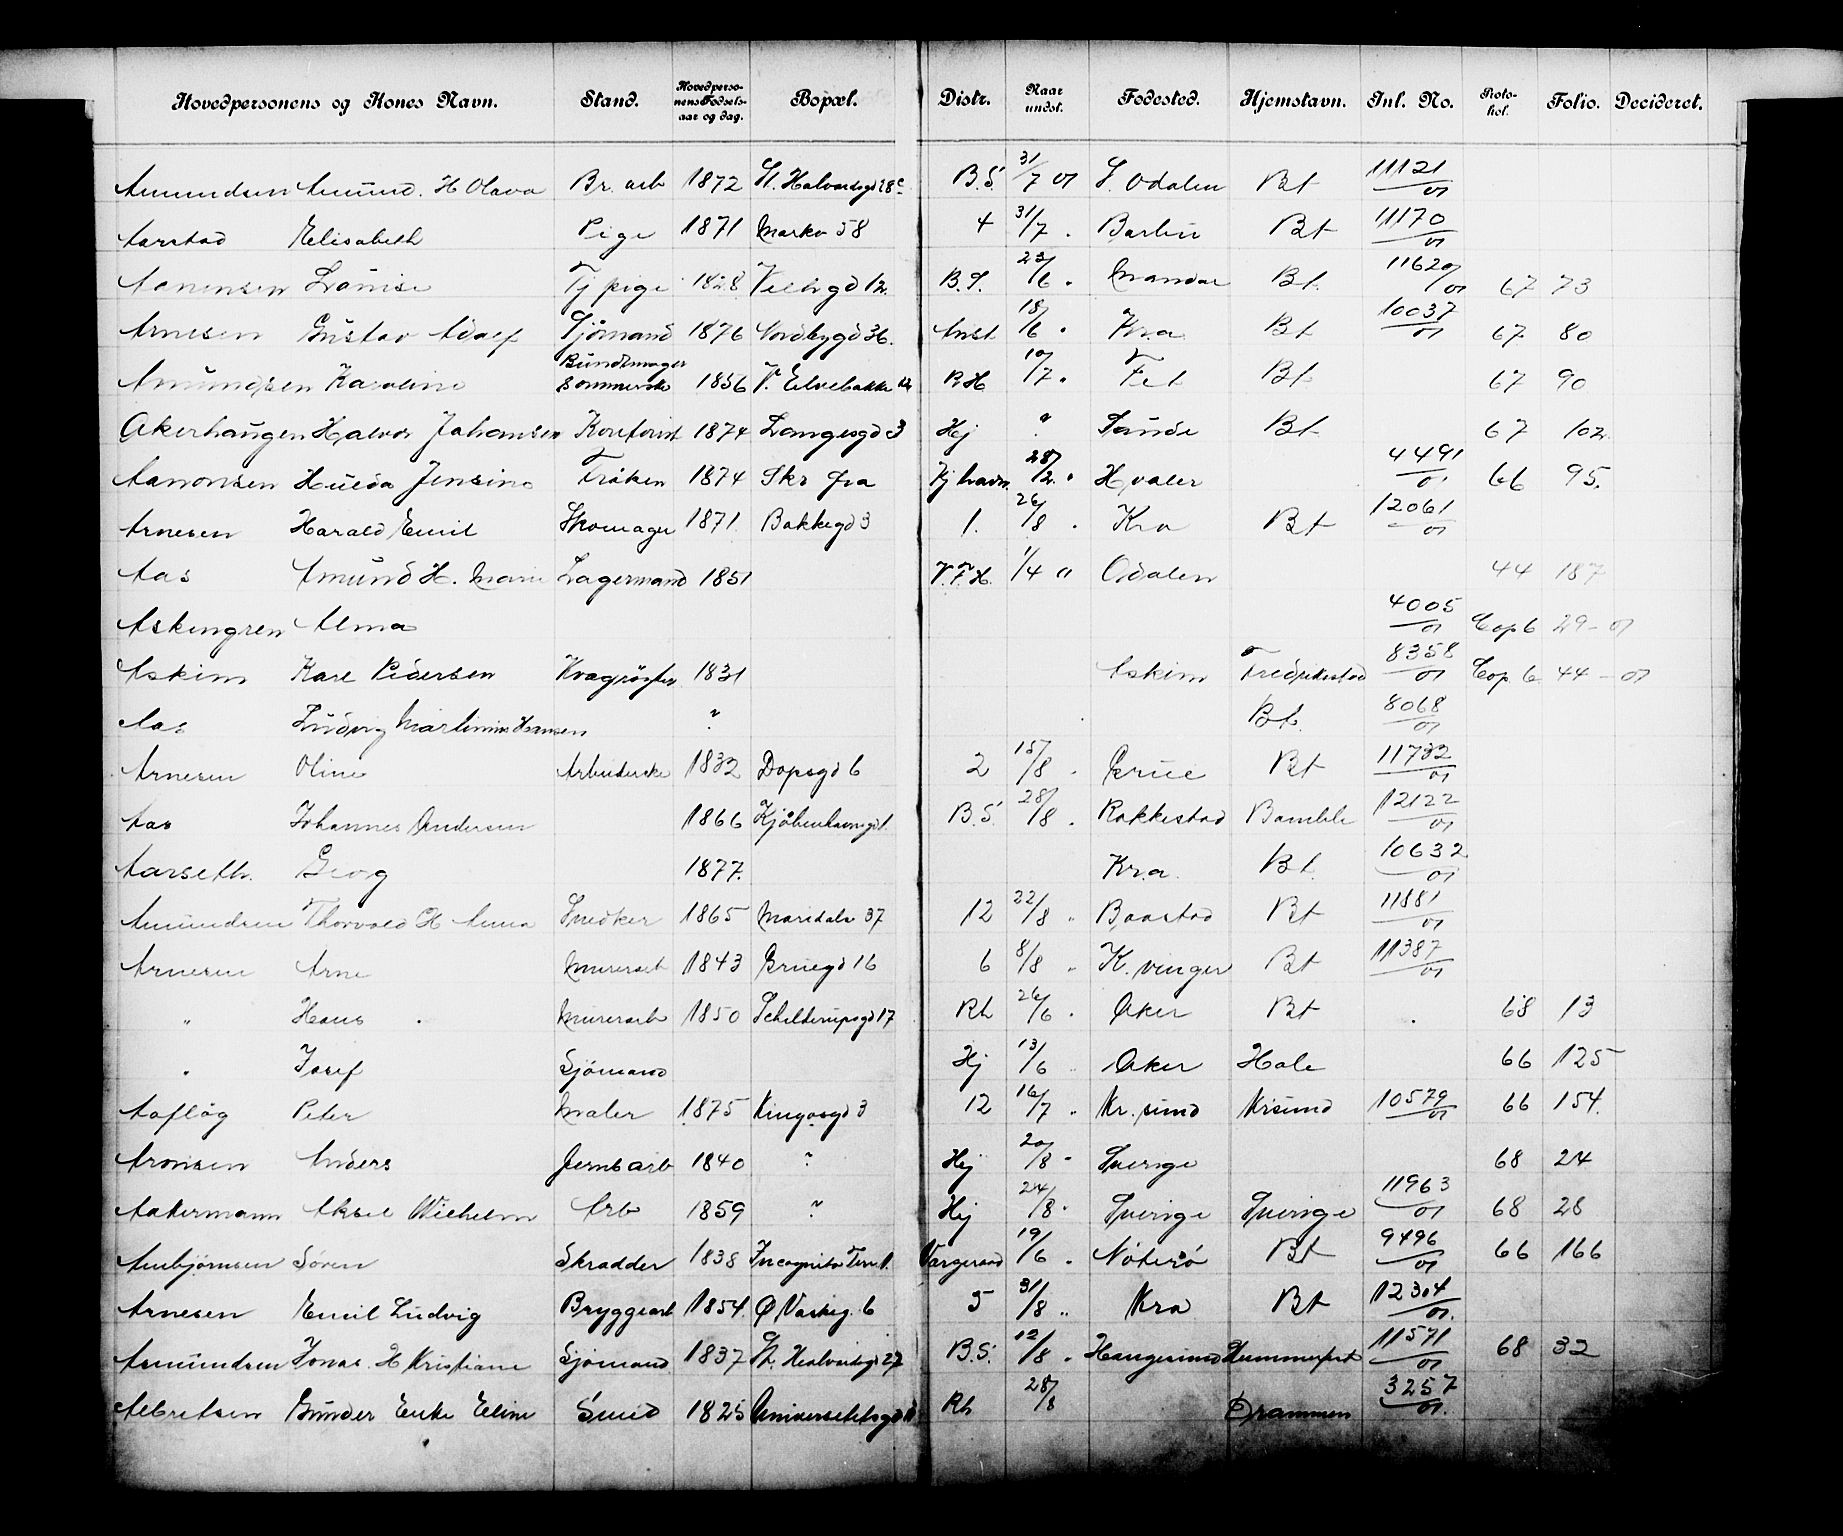 Hovedpersonens og Kones Navn. Stand. Hovedpersonens Fødselsaar og dag. Bopæl. Distr. Naar undst. Fødested. Hjemstavn. Jnl. No. Protokol. Folio. Decideret.
Amundsen Amund. H Olava Br. arb 1872 St. Halvardsgd 28c B.S. 31/7 01 S. Odalen Bt 11121/01
Aarstad Elisabeth Pige 1871 Markv 58 4 31/7 " Bt 11170/01
Aanensen Lovise Tj pige 1828 12 B.S. /6 " Mandal Bt. 11620/01 67 73
Arnesen Gustav Adolf Sjömand 1876 Nordbygd 36. Anst 18/6 " Kra Bt 10037/01 67 80
Amundsen Karoline Buntmager Sommerske 1856 V. Elvebakke B H 10/7 " Fet Bt 67 90
Akerhaugen Halvor Johansen 1874 Langesgd 3 Hj " Saude Bt 67 102
Aanonsen Hulda Jensine Fröken 1874 Skr fra Kj havn. 28/2 " Hvaler 4491/01 66 95.
Arnesen Harald Emil Skomager 1871. Bakkegd 3 1. 26/8 " Kra Bt 12061/01
Aas Amund H. Marie Lagermand 1851 V.F.H. 1/4 " Odalen 44 187
Askengren Alma 4005/01 Cop 6 29 - 01
Askim Karl Pedersen Kvægrögter 1831 Askim Fredrikstad 8358/01 Cop. 6 44 - 01
Aas Ludvig Martinius Hansen " Bt. 8068/01
Arnesen Oline Arbeiderske 1832 Dopsgd 6 2 15/8 " Grue Bt 11732/01
Aas Johannes Andersen 1866 Kjöbenhavnsgd 1. B.S. 28/8 " Rakkestad Bamble 12122/01
Aarseth. Georg 1877. Kra. Bt. 10632/01
Amundsen Thorvald H Anna Snedker 1865 Maridalv 37 12 22/8 " Baastad Bt 11881/01
Arnesen Arne Murerarb 1843 Gruegd 16 6 8/8 " K. vinger Bt 11387/01
" Hans Murerarb 1850 Schilterupsgd 17 Rh 26/6 " Aker Bt 68 13
" Josef Sjömand Hj 13/6 " Aker Hole 66 125
Aaflög Peter Maler 1875 Kingosgd 3 12 16/7 " Kr. sund Krsund 10579/01 66 154.
Aronsen Anders Jernb arb 1840 " Hj 20/8 " Sverige 68 24
Aakermann Aksel Wilhelm Arb 1859 " Hj 24/8 " Sverige Sverige 11963/01 68 28
Anbjörnsen Sören Skrædder 1838 Incognito Terr. 1. 19/6 " Nöterö Bt 9496/01 66 166
Arnesen Emil Ludvig Bryggearb 1854. Ø Vaskeg. 6 5 31/8 " Kra Bt 12304/01.
Asmundsen Jonas. H Kristiane Sjömand 1837 St. Halvardsgd 27 B.S. 12/8 " Haugesund Hammerfest 11571/01 68 32
Albretsen Gunder Enke Eline Smed 1825 Universitetsgd Rh 28/8 Drammen 3257/01.